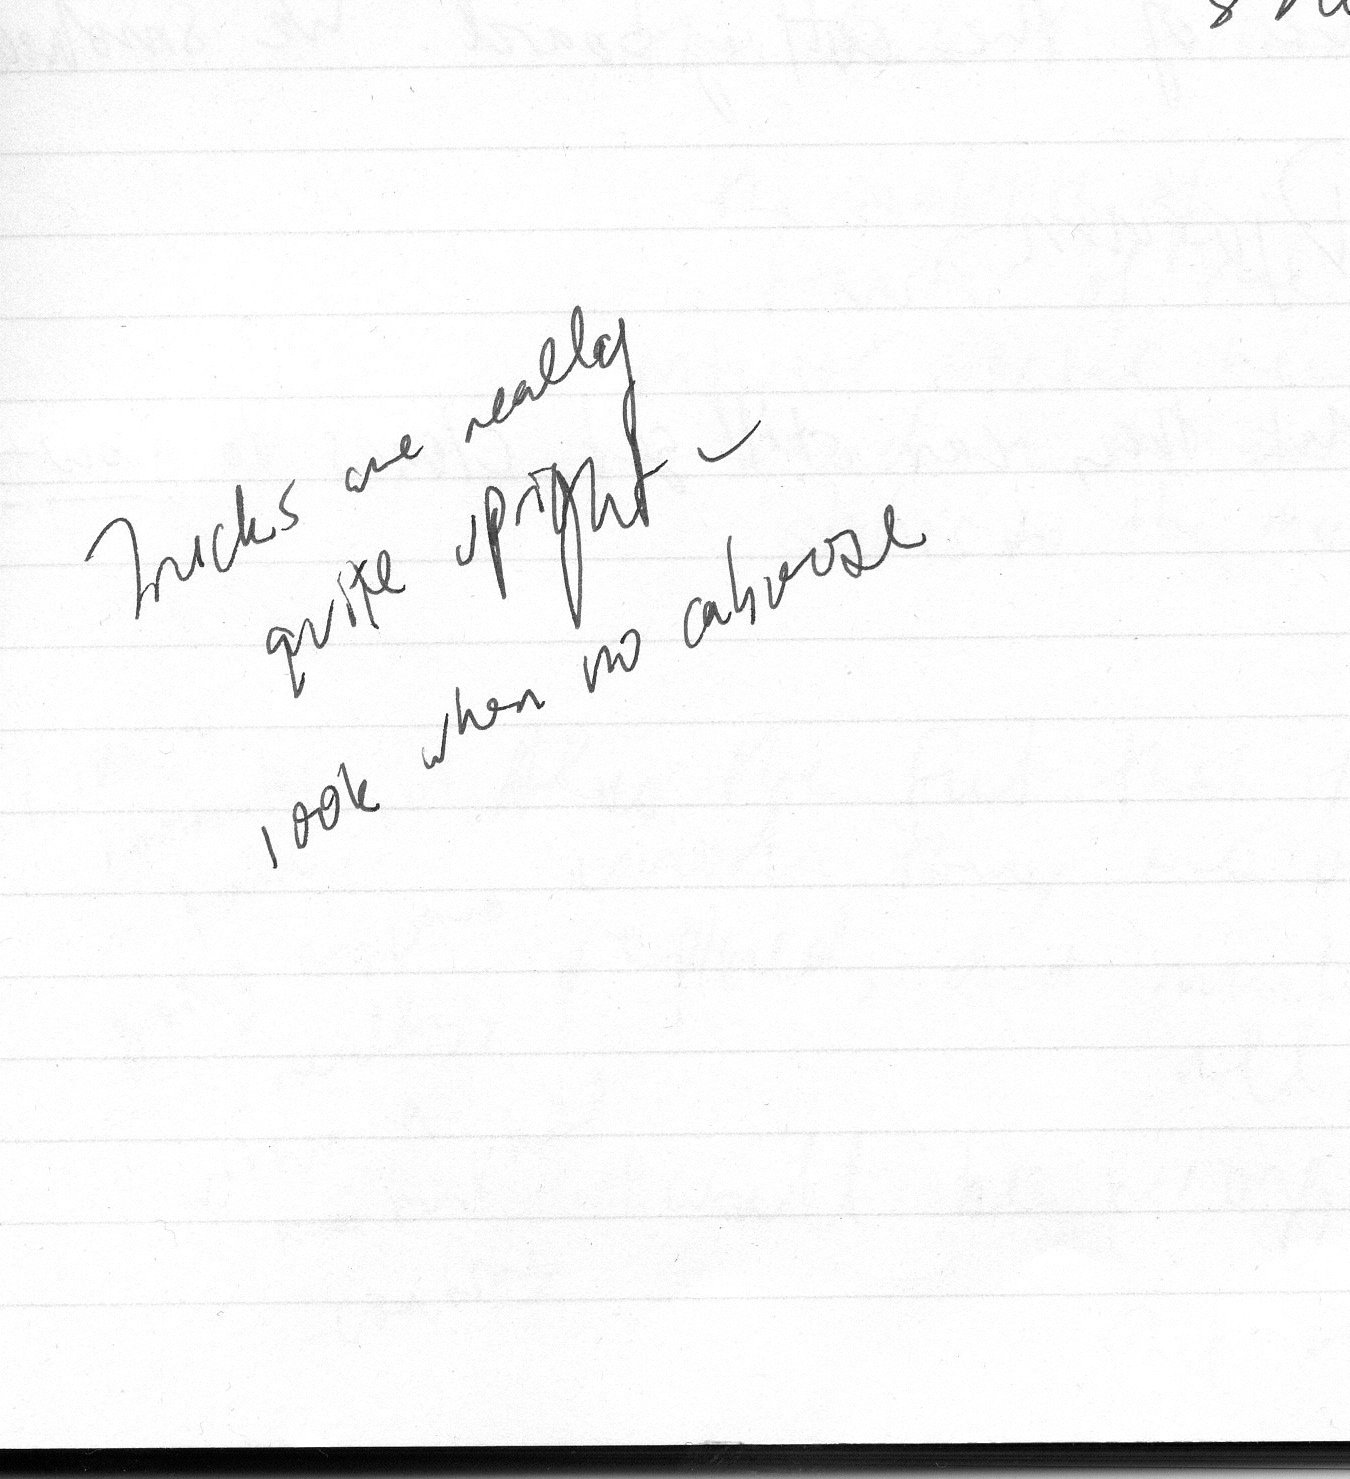 Trucks are really
quite upright –
look when no caboose